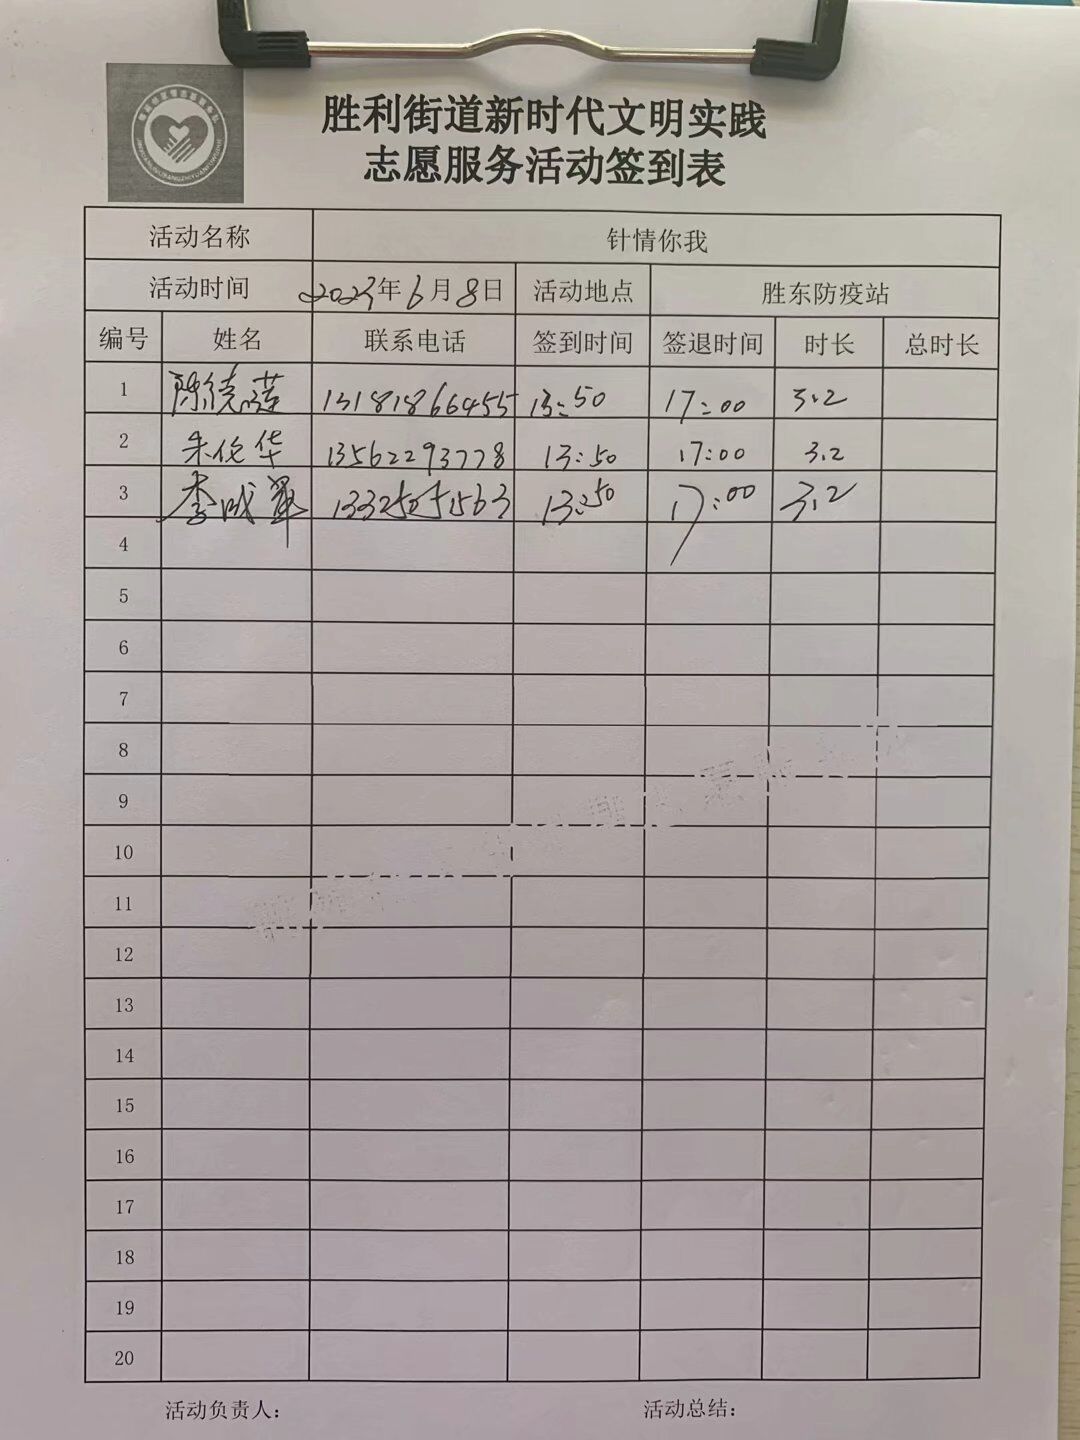 胜利街道新时代文明实践
志愿服务活动签到表
活动名称 针情你我
活动时间 2023年6月8日 活动地点 胜东防疫站
编号 姓名 联系电话 签到时间 签退时间 时长 总时长
1 陈德莲 13181866455 13:50 17:00 3.2
2 朱伦华 13562293778 13:50 17:00 3.2
3 李成军 13325051563 13:50 17:00 3.2
4
5
6
7
8
9
10
11
12
13
14
15
16
17
18
19
20
活动负责人: 活动总结: